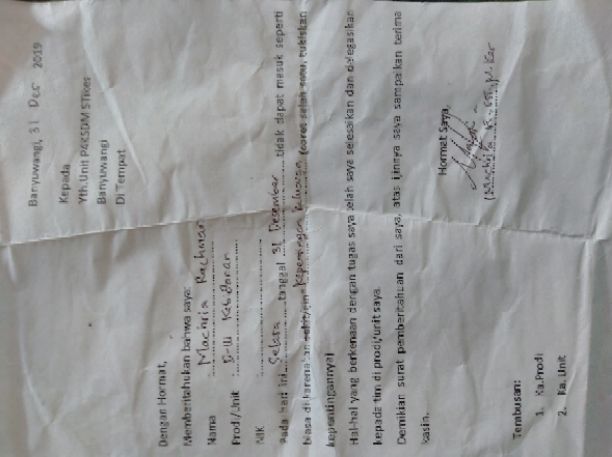 Banyuwangi, 31 Des 2019
Kepada
Yth.Unit P4KSDM STikes
Banyuwangi
Di Tempat
Dengan Hormat,
Memberitahukan bahwa saya:
Nama Machria Rachman
Prodi /Unit D-III Kebidanan
NIK
Pada hari ini Selasa tanggal 31 Desember tidak dapat masuk seperti
biasa di karenakan sakit/ijin* Kepentingan keluarga (coret salah satu, tuliskan
kepentingannya)
Hal-hal yang berkenaan dengan tugas saya telah saya selesaikan dan delegasikan
kepada tim di prodi/unit saya.
Demikian surat pemberitahuan dari saya, atas ijinnya saya sampaikan terima
kasih.
Hormat Saya,
Tembusan:
1. Ka.Prodi
2. Ka.Unit